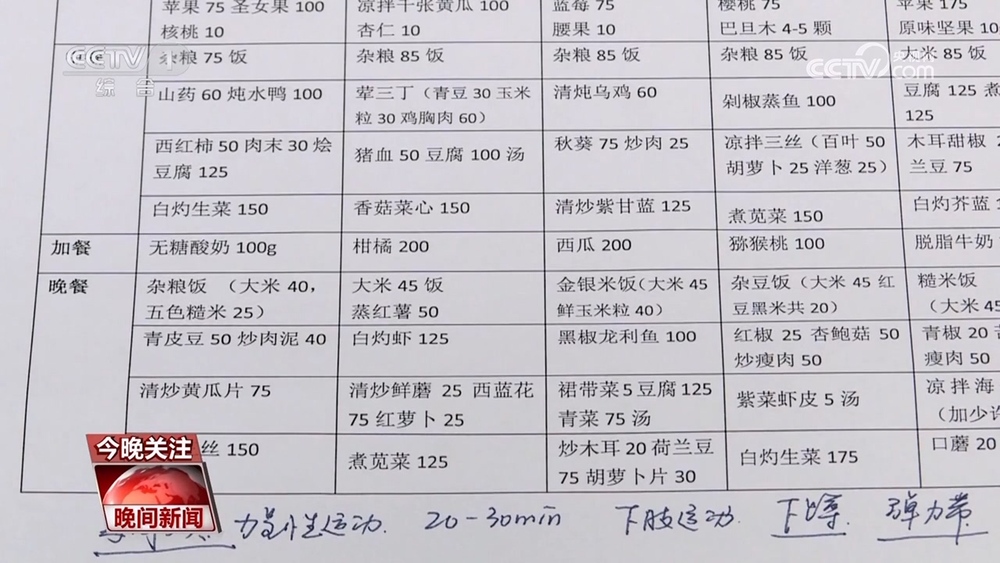 苹果 75 圣女果 100
核桃 10
凉拌千张黄瓜 100
杏仁 10
蓝莓 75
腰果 10
樱桃 75
巴旦木 4-5 颗
苹果 175
原味坚果 10
杂粮 75 饭
杂粮 85 饭
杂粮 85 饭
杂粮 85 饭
大米 85 饭
山药 60 炖水鸭 100
荤三丁（青豆 30 玉米
粒 30 鸡胸肉 60）
清炖乌鸡 60
剁椒蒸鱼 100
豆腐 125 煮
125
西红柿 50 肉末 30 烩
豆腐 125
猪血 50 豆腐 100 汤
秋葵 75 炒肉 25
凉拌三丝（百叶 50
胡萝卜 25 洋葱 25）
木耳甜椒
兰豆 75
白灼生菜 150
香菇菜心 150
清炒紫甘蓝 125
煮苋菜 150
白灼芥蓝
加餐
无糖酸奶 100g
柑橘 200
西瓜 200
猕猴桃 100
脱脂牛奶
晚餐
杂粮饭 （大米 40，
五色糙米 25）
大米 45 饭
蒸红薯 50
金银米饭（大米 45
鲜玉米粒 40）
杂豆饭（大米 45 红
豆黑米共 20）
糙米饭
（大米 45
青皮豆 50 炒肉泥 40
白灼虾 125
黑椒龙利鱼 100
红椒 25 杏鲍菇 50
炒瘦肉 50
青椒 20
瘦肉 50
清炒黄瓜片 75
清炒鲜蘑 25 西蓝花
75 红萝卜 25
裙带菜 5 豆腐 125
青菜 75 汤
紫菜虾皮 5 汤
凉拌海
（加少许
丝 150
煮苋菜 125
炒木耳 20 荷兰豆
75 胡萝卜片 30
白灼生菜 175
口蘑 20
力量性运动 20-30min 下肢运动 下蹲 弹力带
CCTV 1
综合
CCTV.com
今晚关注
晚间新闻